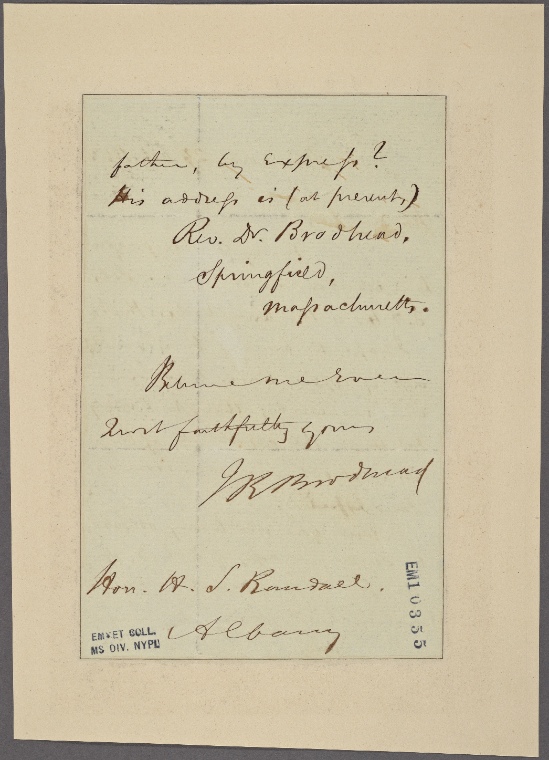 father, by Express?
His address is (at present,)
Rev. Dr. Brodhead,
Springfield,
Massachusetts.
Believe me Ever
Most faithfully yours
J R Brodhead
Hon. H. S. Randall.
Albany
EMMET COLL.
MS DIV. NYPL
EM10355